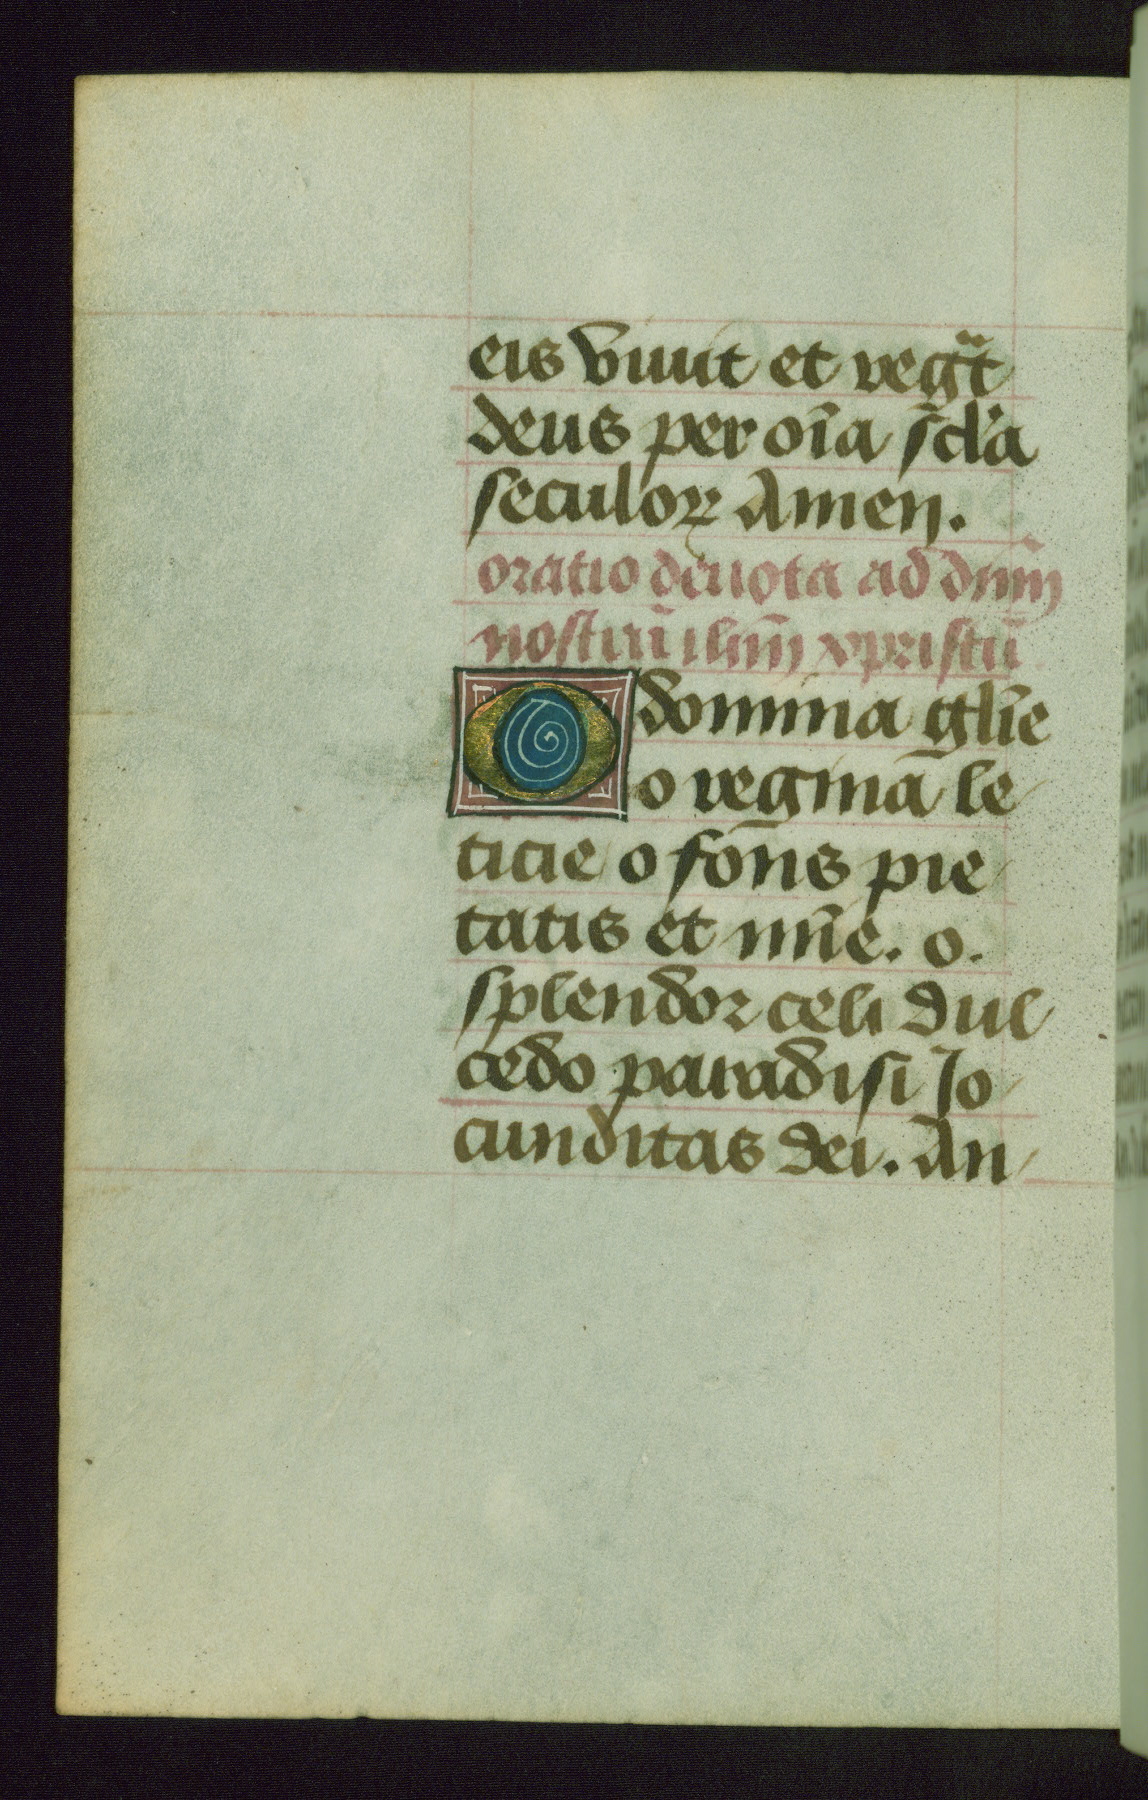 eis viuit et regͣt
deus per oīa sc̄l'a
seculoꝝ Amen.
oratio deuota ad dnm̄
nostrū ihm̄ xpristū
O domina gl̄ie
o regina le
ticie o fons pie
tatis et mn̄e. o.
splendor celi dul
cedo paradisi Jo
cunditas dei. An